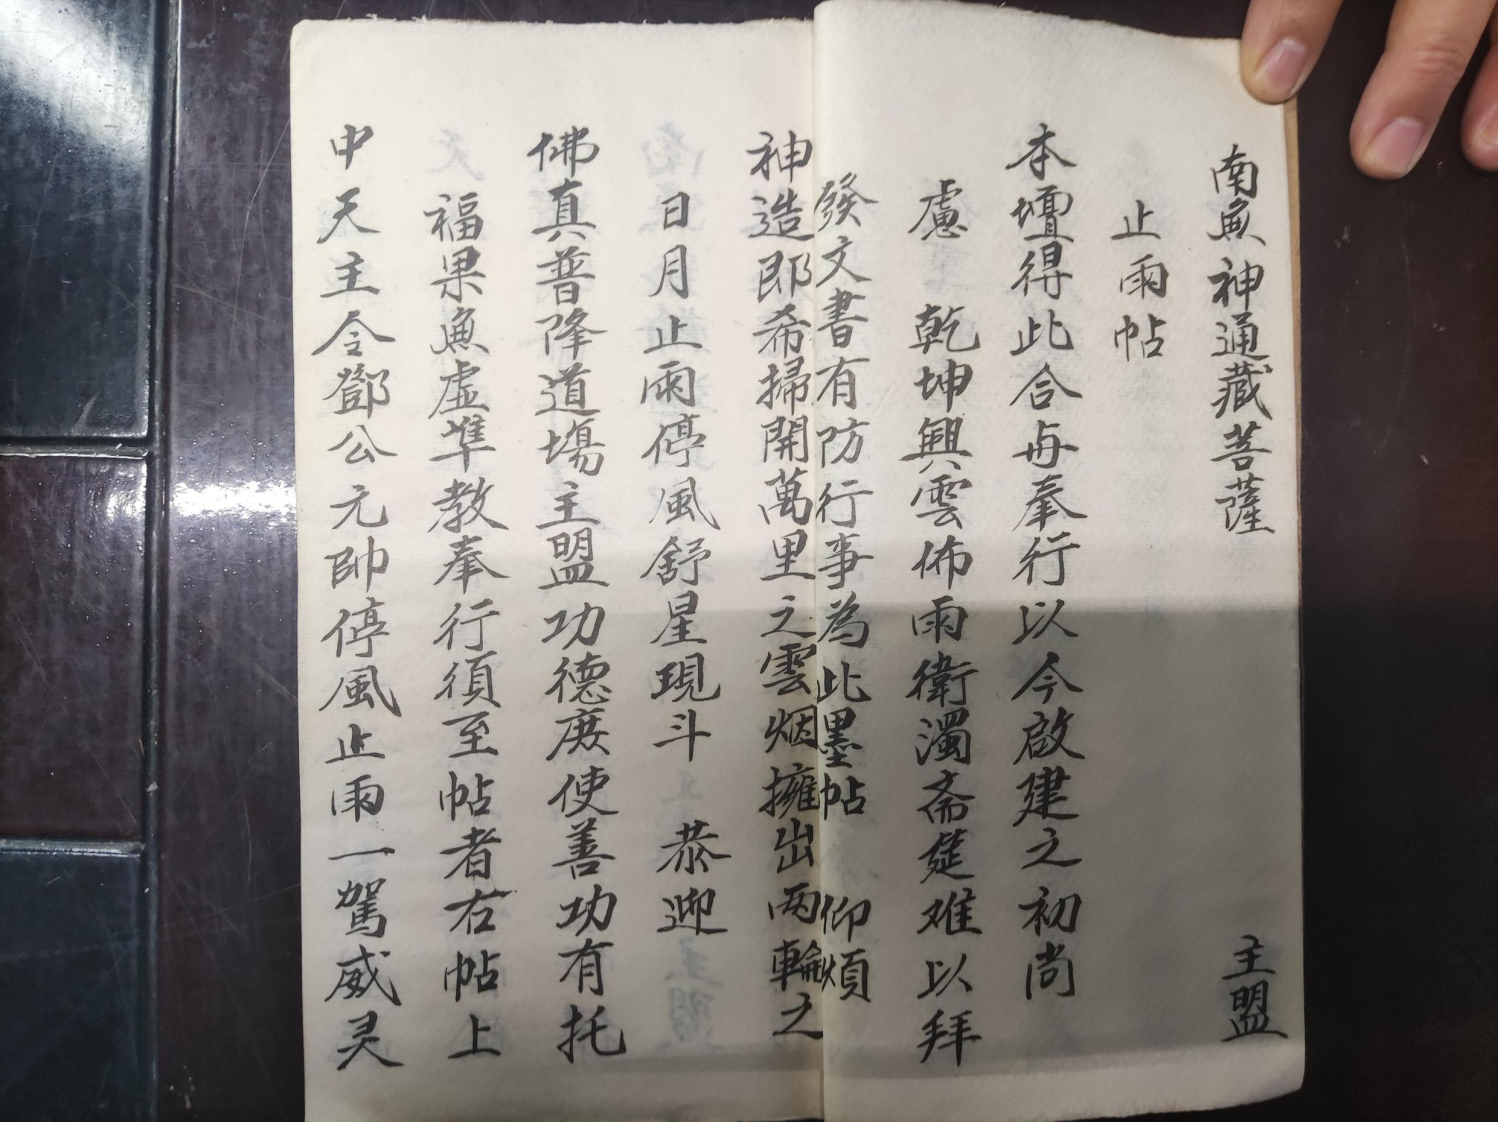 南無神通藏菩薩　主盟
止雨帖
本壇得此合毋奉行以今啟建之初尚
慮　乾坤興雲佈雨衛濁斎筵难以拜
發文書有防行事為此墨帖　仰煩
神造即希掃開萬里之雲烟擁出两輪之
日月止雨停風舒星現斗　恭迎
佛真普降道場主盟功德庶使善功有托
福果無虛準教奉行須至帖者右帖上
申天主令鄧公元帥停風止雨一駕威灵